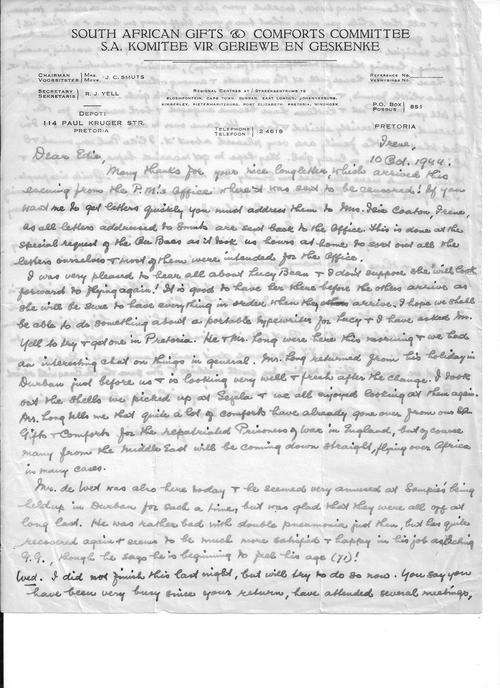 SOUTH AFRICAN GIFTS & COMFORTS COMMITTEE
S.A. KOMITEE VIR GERIEWE EN GESKENKE
CHAIRMAN MRS.
VOORSITSTER MEVR. J. C. SMUTS
REFERENCE NO.
VERWYSINGS NO.
SECRETARY
SEKRETARIS R. J. YELL
REGIONAL CENTRES AT / STREEKSENTRUMS TE
BLOEMFONTEIN, CAPE TOWN, DURBAN, EAST LONDON, JOHANNESBURG,
KIMBERLEY, PIETERMARITZBURG, PORT ELIZABETH, PRETORIA, WINDHOEK.
P.O. BOX
POSBUS 851
DEPOT:
114 PAUL KRUGER STR.
PRETORIA
TELEPHONE
TELEFOON 24619
PRETORIA
Irene,
10 Oct. 1944.
Dear Edie,
Many thanks for your nice long letter which arrived this
evening from the P.M's Office where it was sent to be censored! If you
want me to get letters quickly you must address them to Mrs. Isie Coaton, Irene,
as all letters addressed to Smuts are sent back to the Office. This is done at the
special request of the Ou Baas as it took us hours at home to sort out all the
letters ourselves & most of them were intended for the Office.
I was very pleased to hear all about Lucy Bean & I don't suppose she will look
forward to flying again! It is good to have her there before the others arrive as
she will be sure to have everything in order when they arrive. I hope we shall
be able to do something about a portable typewriter for Lucy & I have asked Mr.
Yell to try & get one in Pretoria. He & Mr. Long were here this morning & we had
an interesting chat on things in general. Mr. Long returned from his holiday in
Durban just before us & is looking very well & fresh after the change. I took
out the shells we picked up at & we all enjoyed looking at them again.
Mr. Long tells me that quite a lot of comforts have already gone over from our
Gifts & Comforts for the repatriated Prisoners of War in England, but of course
many from the Middle East will be coming down straight, flying over Africa
in many cases.
Mr. de Wet was also here today & he seemed very amused at being
held up in Durban for such a time, but was glad that they were all off at
long last. He was rather bad with double pneumonia just then, but has quite
recovered again & seems to be much more satisfied & happy in his job as Acting
G.G., though he says he is beginning to feel his age (71)!
Wed. I did not finish this last night, but will try to do so now. You say you
have been very busy since your return, have attended several meetings,